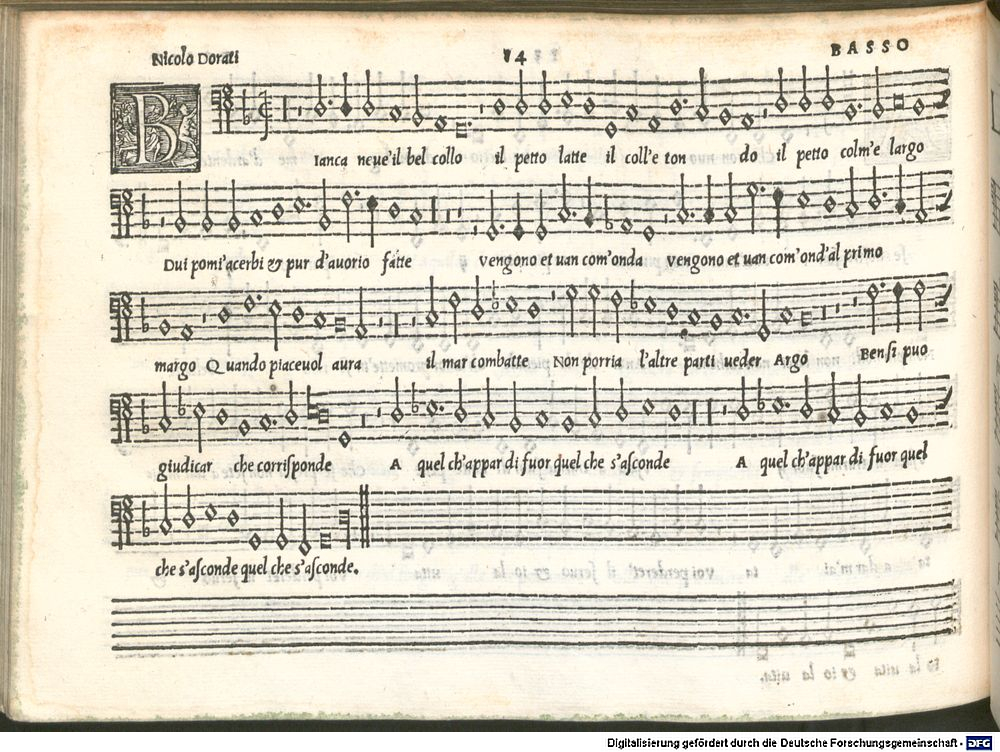 Nicolo Dorati 14 BASSO
B
Ianca neue'il bel collo il petto latte il coll'e ton do il petto colm'e largo
Dui pomi'acerbi & pur d'auorio fatte vengono et uan com'onda vengono et uan com'ond'al primo
margo Quando piaceuol aura il mar combatte Non porria l'altre parti ueder Argo Ben si puo
giudicar che corrisponde A quel ch'appar di fuor quel che s'asconde A quel ch'appar di fuor quel
che s'asconde quel che s'asconde.
Digitalisierung gefördert durch die Deutsche Forschungsgemeinschaft - DFG